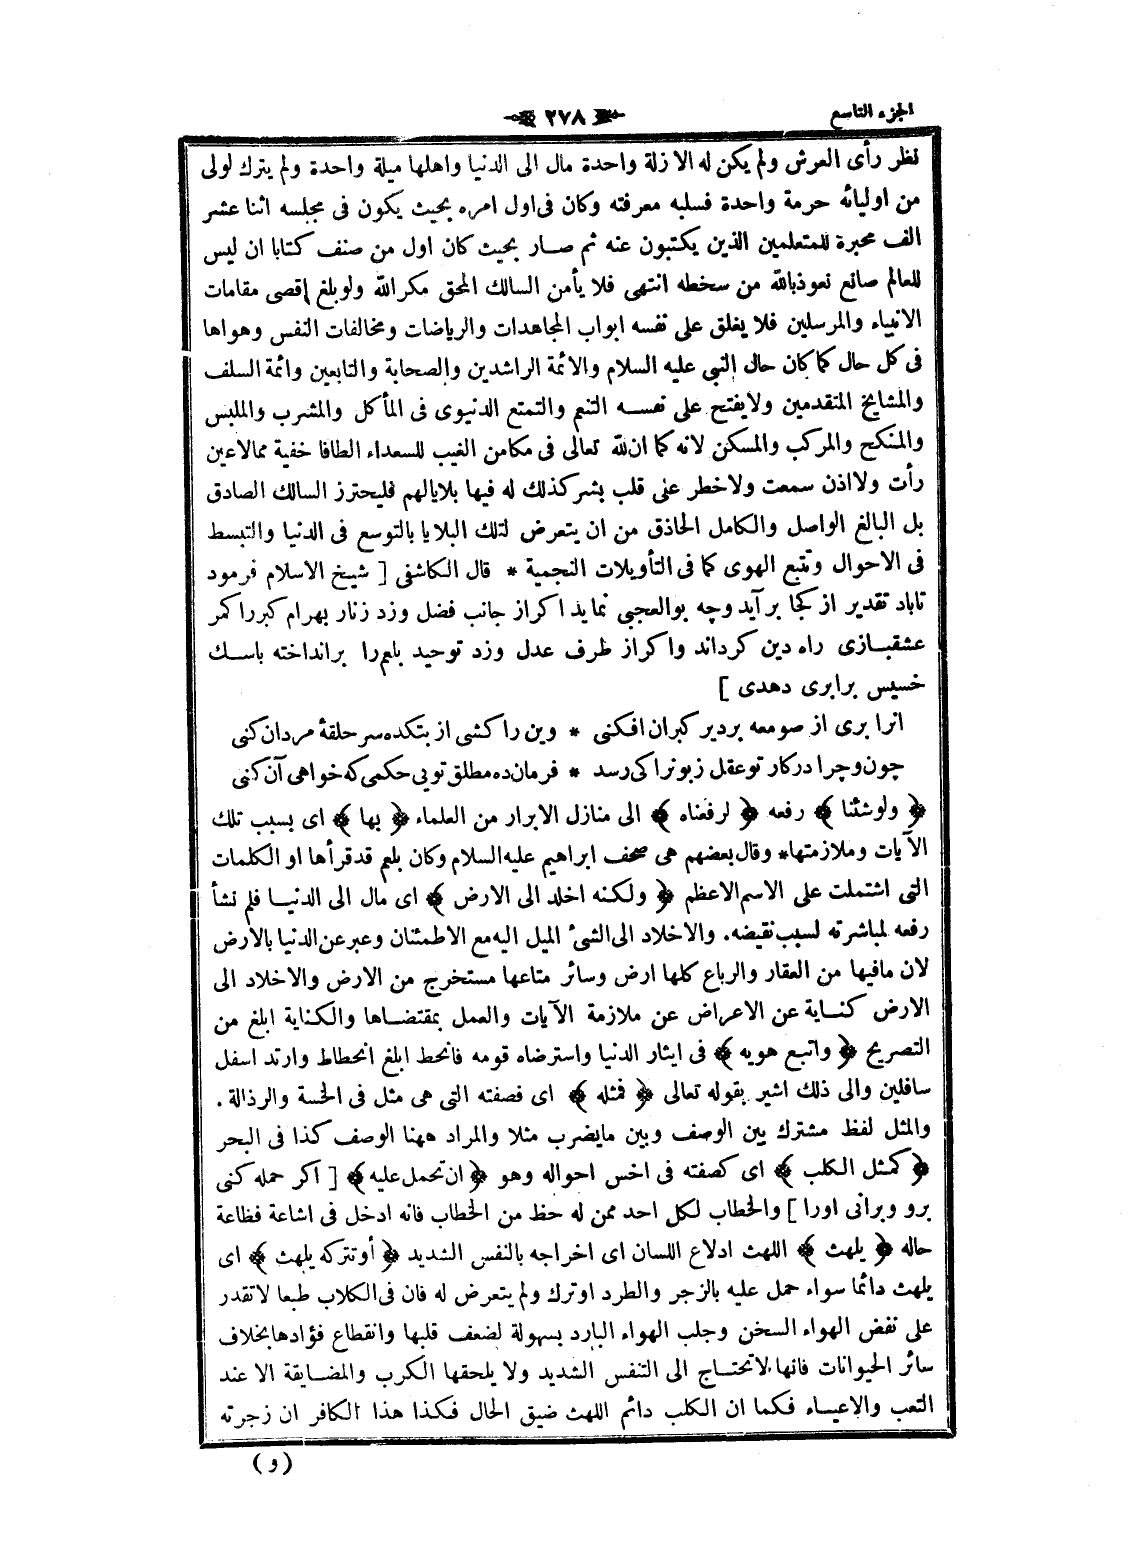 الجزء التاسع
٢٧٨
نظر رأى العرش ولم يكن له الا زلة واحدة مال الى الدنيا واهلها ميلة واحدة ولم يترك لولى
من اوليائه حرمة واحدة فسلبه معرفته وكان فى اول امره بحيث يكون فى مجلسه اثنا عشر
الف محبرة للمتعلمين الذين يكتبون عنه ثم صار بحيث كان اول من صنف كتابا ان ليس
للعالم صانع نعوذ بالله من سخطه انتهى فلا يأمن السالك المحق مكر الله ولو بلغ اقصى مقامات
الانبياء والمرسلين فلا يغلق على نفسه ابواب المجاهدات والرياضات ومخالفات النفس وهواها
فى كل حال كما كان حال النبى عليه السلام والائمة الراشدين والصحابة والتابعين وائمة السلف
والمشايخ المتقدمين ولا يفتح على نفسه التنعم والتمتع الدنيوى فى المأكل والمشرب والملبس
والمنكح والمركب والمسكن لانه كما ان لله تعالى فى مكامن الغيب للسعداء الطافا خفية ممالا عين
رأت ولا اذن سمعت ولا خطر على قلب بشر كذلك له فيها بلايا لهم فليحترز السالك الصادق
بل البالغ الواصل والكامل الحاذق من ان يتعرض لتلك البلايا بالتوسع فى الدنيا والتبسط
فى الاحوال وتتبع الهوى كما فى التأويلات النجمية * قال الكاشفى [ شيخ الاسلام فرمود
تاباد تقدير از كجا بر آيد وچه بوالعجبى نمايد اكر از جانب فضل وزد زنار بهرام كبررا كمر
عشقبازى راه دين كرداند واكر از طرف عدل وزد توحيد بلعم را برانداخته باسك
خسيس برابرى دهدى ]
انرا برى از صومعه بردير كبران افكنى * وين را كشى از بتكده سر حلقۀ مردان كنى
چون وچرا در كار تو عقل زبونرا كى رسد * فرمان ده مطلق تويى حكمى كه خواهى آن كنى
﴿ ولو شئنا ﴾ رفعه ﴿ لرفعناه ﴾ الى منازل الابرار من العلماء ﴿ بها ﴾ اى بسبب تلك
الآيات وملازمتها * وقال بعضهم هى صحف ابراهيم عليه السلام وكان بلعم قد قرأها او الكلمات
التى اشتملت على الاسم الاعظم ﴿ ولكنه اخلد الى الارض ﴾ اى مال الى الدنيا فلم نشأ
رفعه لمباشرته لسبب نقيضه . والاخلاد الى الشئ الميل اليه مع الاطمئنان وعبر عن الدنيا بالارض
لان مافيها من العقار والرباع كلها ارض وسائر متاعها مستخرج من الارض والاخلاد الى
الارض كناية عن الاعراض عن ملازمة الآيات والعمل بمقتضاها والكناية ابلغ من
التصريح ﴿ واتبع هويه ﴾ فى ايثار الدنيا واسترضاء قومه فانحط ابلغ انحطاط وارتد اسفل
سافلين والى ذلك اشير بقوله تعالى ﴿ فمثله ﴾ اى فصفته التى هى مثل فى الخسة والرذالة .
والمثل لفظ مشترك بين الوصف وبين ما يضرب مثلا والمراد ههنا الوصف كذا فى البحر
﴿ كمثل الكلب ﴾ اى كصفته فى اخس احواله وهو ﴿ ان تحمل عليه ﴾ [ اكر حمله كنى
برو وبرانى اورا ] والخطاب لكل احد ممن له حظ من الخطاب فانه ادخل فى اشاعة فظاعة
حاله ﴿ يلهث ﴾ اللهث ادلاع اللسان اى اخراجه بالنفس الشديد ﴿ أو تتركه يلهث ﴾ اى
يلهث دائما سواء حمل عليه بالزجر والطرد او ترك ولم يتعرض له فان فى الكلاب طبعا لا تقدر
على نفض الهواء السخن وجلب الهواء البارد بسهولة لضعف قلبها وانقطاع فؤادها بخلاف
سائر الحيوانات فانها لا تحتاج الى التنفس الشديد ولا يلحقها الكرب والمضايقة الا عند
التعب والاعياء فكما ان الكلب دائم اللهث ضيق الحال فكذا هذا الكافر ان زجرته
( و )